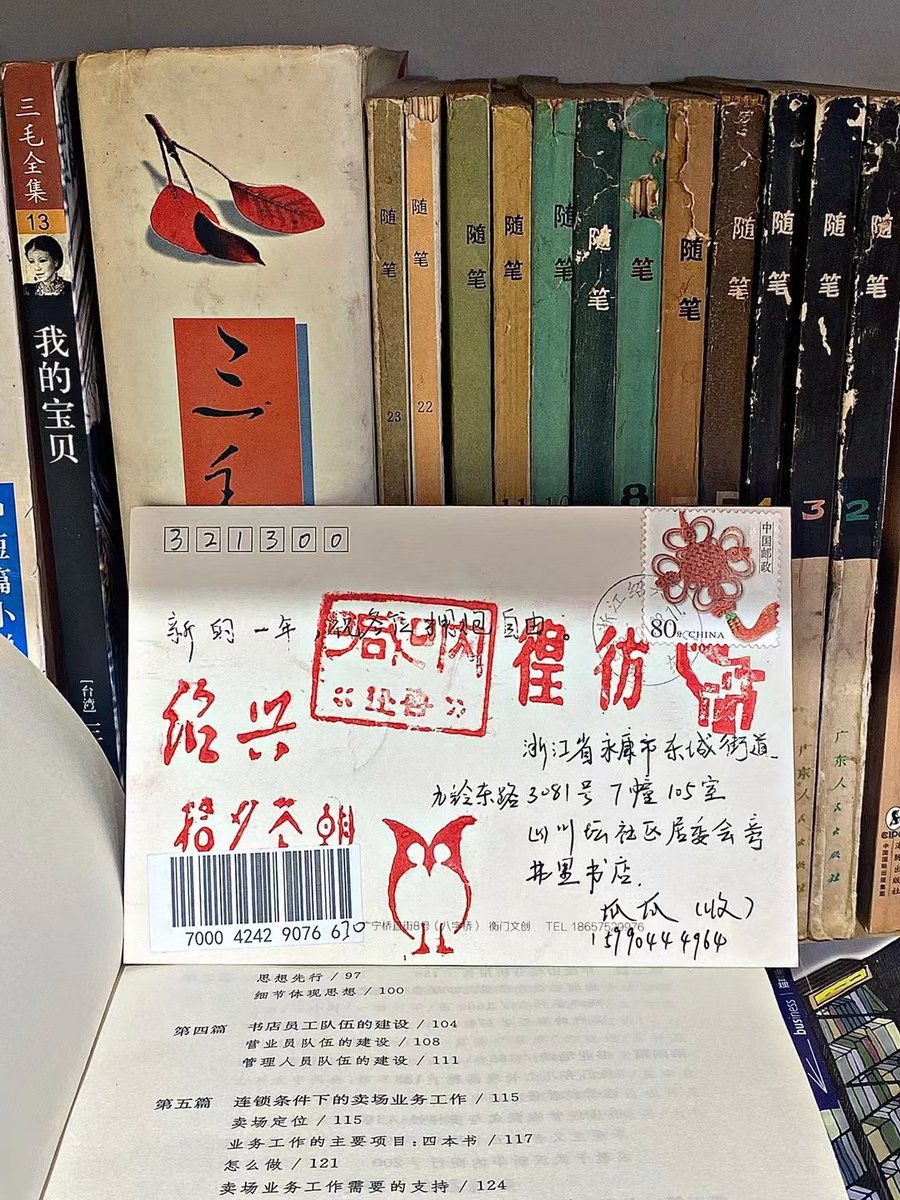 三毛全集
13
我的宝贝
[台湾]
短篇小
三毛
随笔
23
随笔
22
随笔
随笔
11
随笔
10
随笔
随笔
8
随笔
随笔
5
随笔
4
随笔
3
广东人民出版社
随笔
2
广东人民出版社
321300
中国邮政
80分 CHINA
浙江绍
新的一年，祝各位拥抱自由。
呐喊
彷徨
绍兴
朝花夕拾
浙江省永康市东城街道
九铃东路3081号7幢105室
四川坛社区居委会旁
井里书店.
瓜瓜（收）
15990444964
7000 4242 9076 630
广宁桥直街8号（八字桥） 衡门文创 TEL 18657529976
思想先行 / 97
细节体现思想 / 100
第四篇 书店员工队伍的建设 / 104
营业员队伍的建设 / 108
管理人员队伍的建设 / 111
第五篇 连锁条件下的卖场业务工作 / 115
卖场定位 / 115
业务工作的主要项目：四本书 / 117
怎么做 / 121
卖场业务工作需要的支持 / 124
business